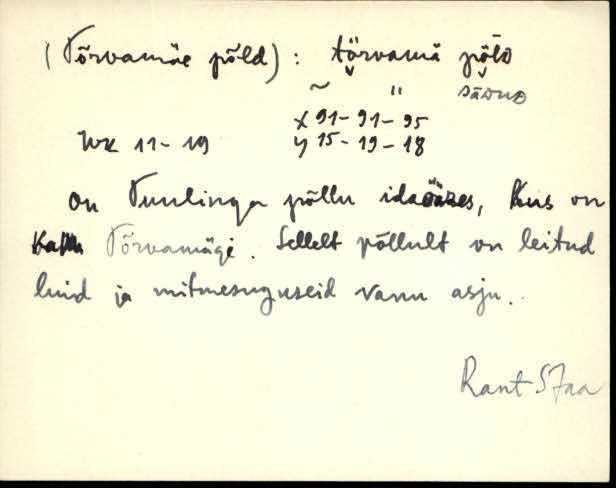 (Tõrvamäe põld): tö̬rvamä pö̬lD
~ " säDuD
Wk 11-19 x 91-91-95
y 15-19-18
on Tuulinga põllu idaääres, kus on
ka Tõrvamägi. Sellelt põllult on leitud
luid ja mitmesuguseid vanu asju.
Rant